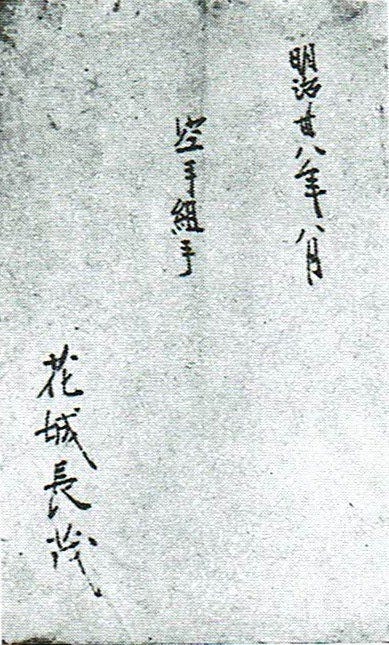 明治卅八年八月
空手組手
花城長茂